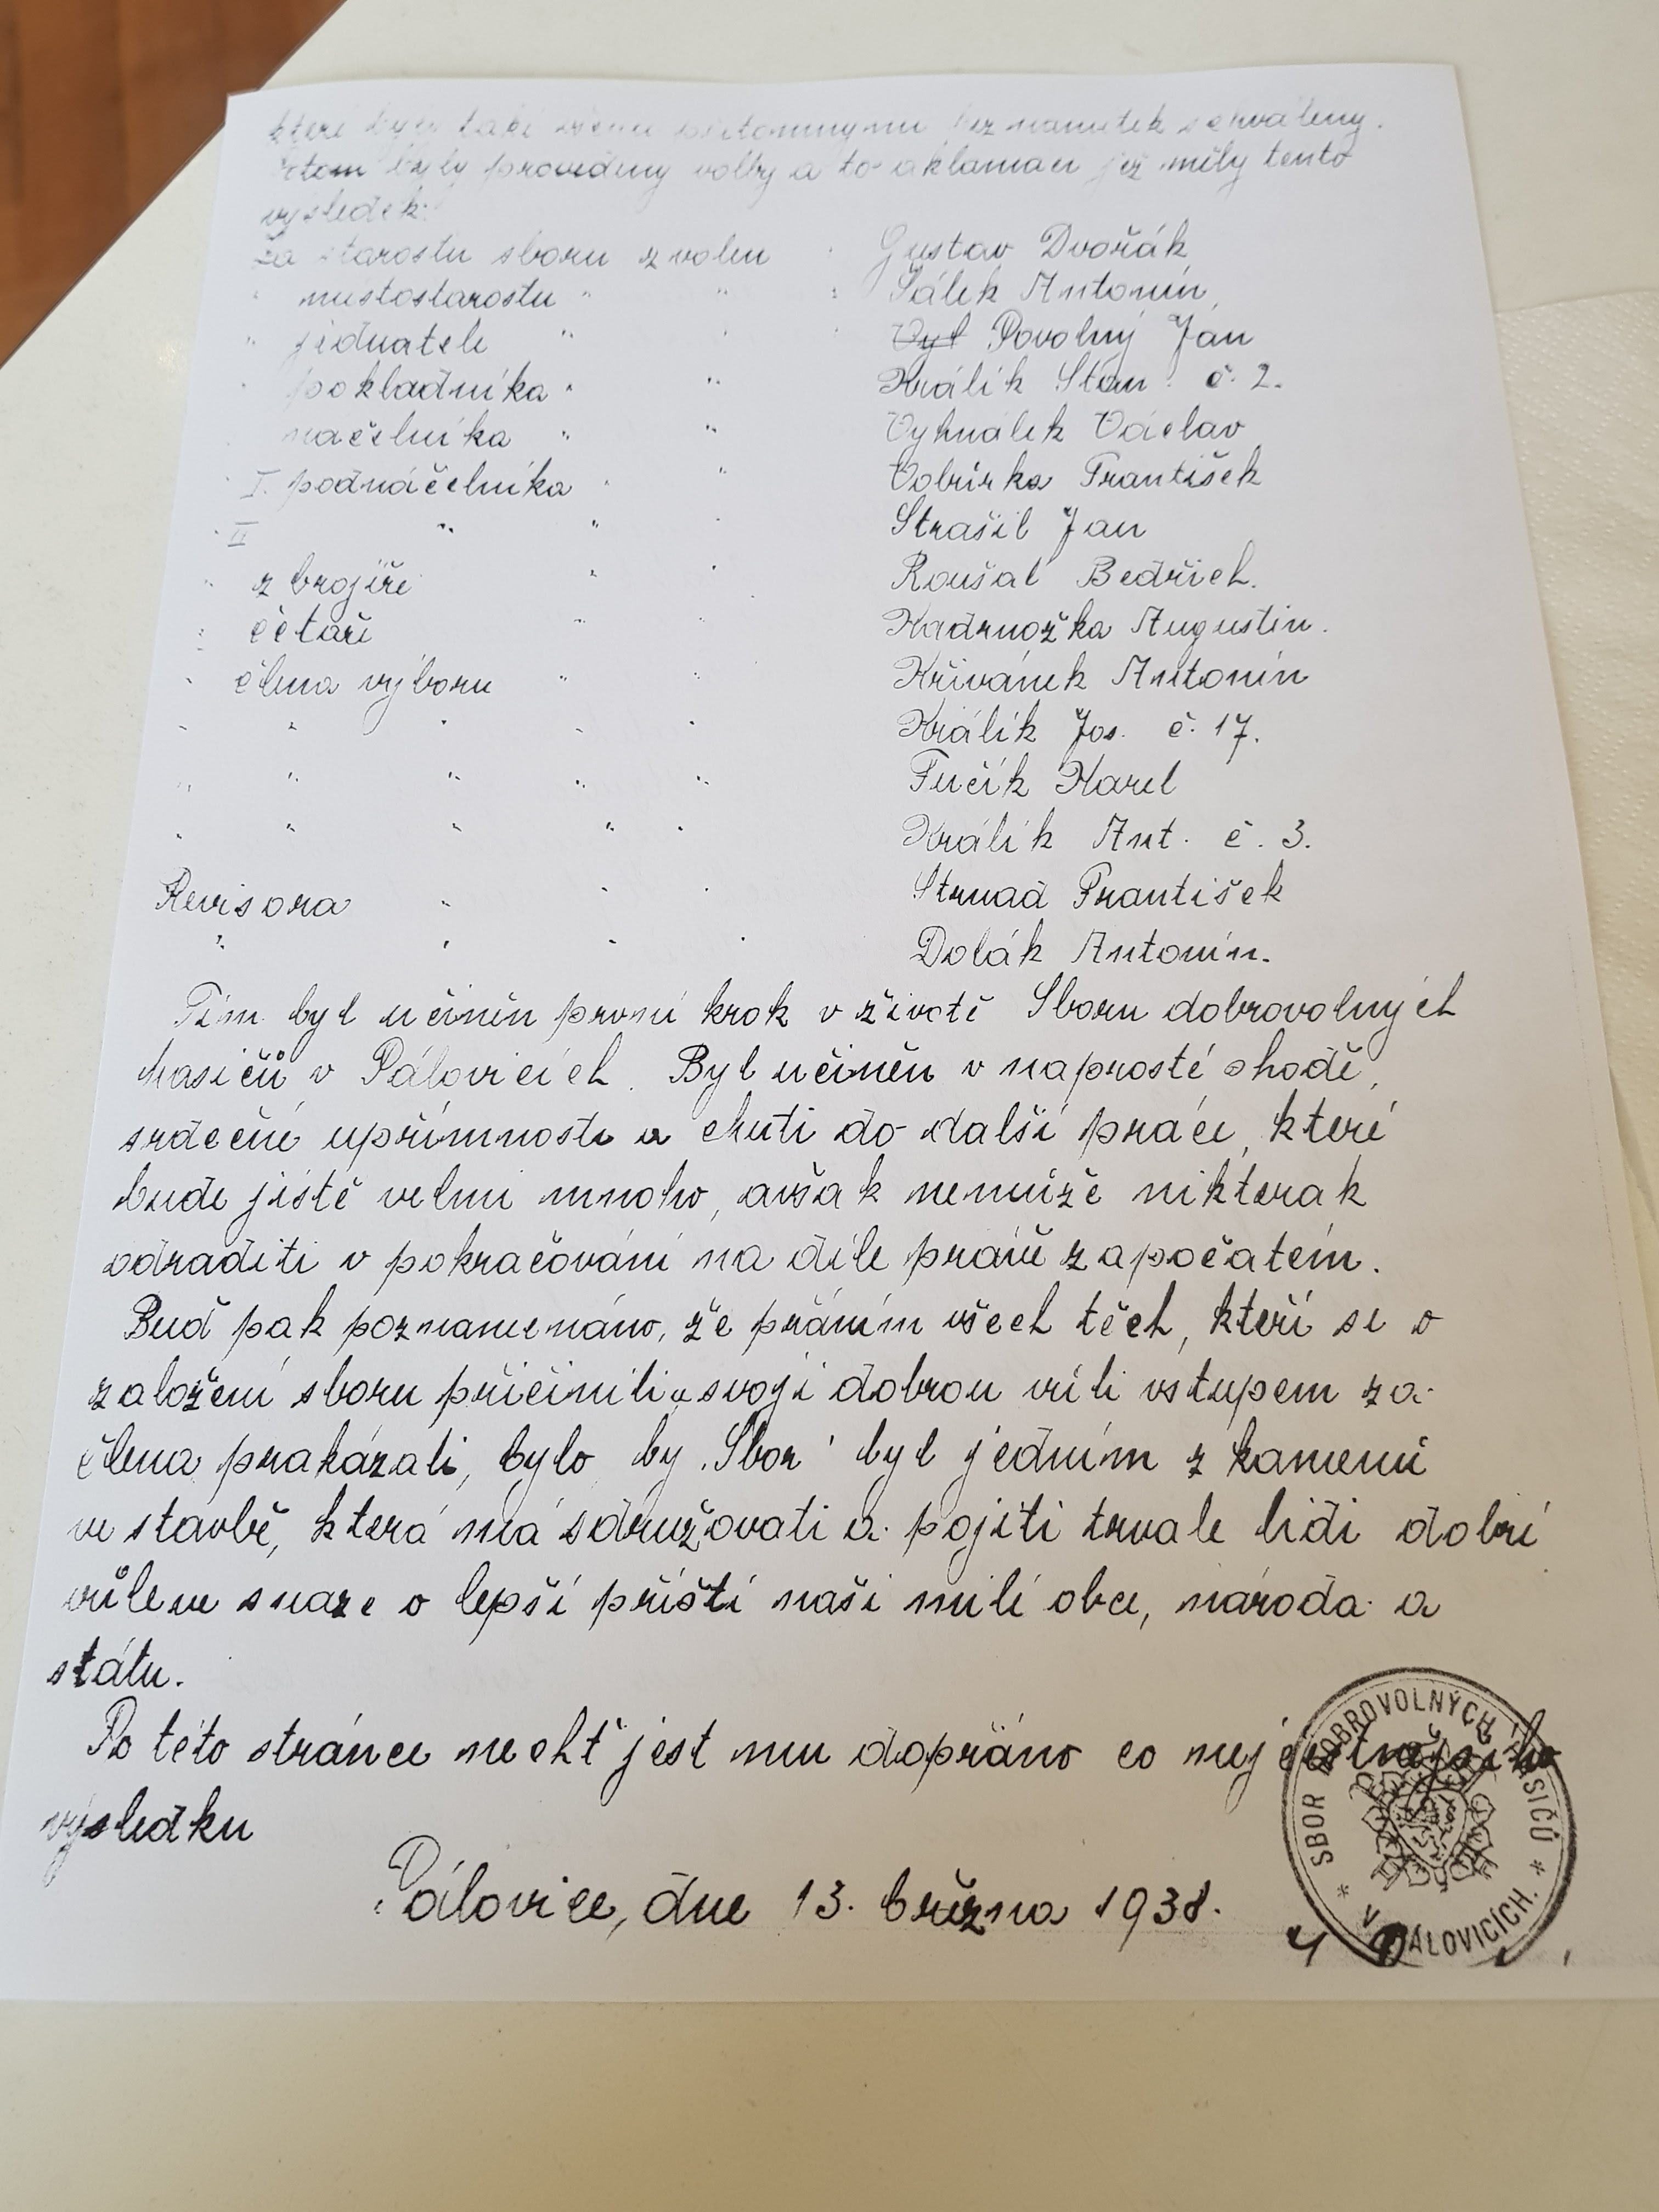 které byly také všemi přítomnými bez namitek schváleny.
Potom byly provedeny volby a to aklamací jež měly tento
výsledek:
Za starostu sboru zvolen : Gustav Dvořák
" místostarostu " " : Šálek Antonín,
" jednatele " " : Vyt Povolný Jan
" pokladníka " " Králík Stan. č. 2.
" náčelníka " " Vyhnálek Václav
" I. podnáčelníka " " Vobůrka František
" II " " " Strašil Jan
" zbrojíře " " Roušal Bedřich.
" četaře " " Kadrnožka Augustin.
" člena výboru " " Křivánek Antonín
" " " " " Králík Jos. č. 17.
" " " " " Fučík Karel
" " " " " Králík Ant. č. 3.
Revisora " " " Strnad František
" " " " Dolák Antonín.
Tím byl učiněn první krok v životě Sboru dobrovolných
hasičů v Pálovicích. Byl učiněn v naprosté shodě,
srdečné upřímnosti a chuti do další práce, které
bude jistě velmi mnoho, avšak nemůže nikterak
odraditi v pokračování na díle právě započatém.
Buď pak poznamenáno, že přáním všech těch, kteří se o
založení sboru přičinili a svoji dobrou vůli vstupem za
člena prokázali, bylo by „Sbor" byl jedním z kamenů
ve stavbě, která má sdružovati a pojiti trvale lidi dobré
vůle ve snaze o lepší příští naší milé obce, národa a
státu.
Po této stránce nechť jest mu dopřáno co nejčestnějšího
výsledku
Pálovice, dne 13. března 1938.
SBOR DOBROVOLNÝCH HASIČŮ
* V PÁLOVICÍCH. *